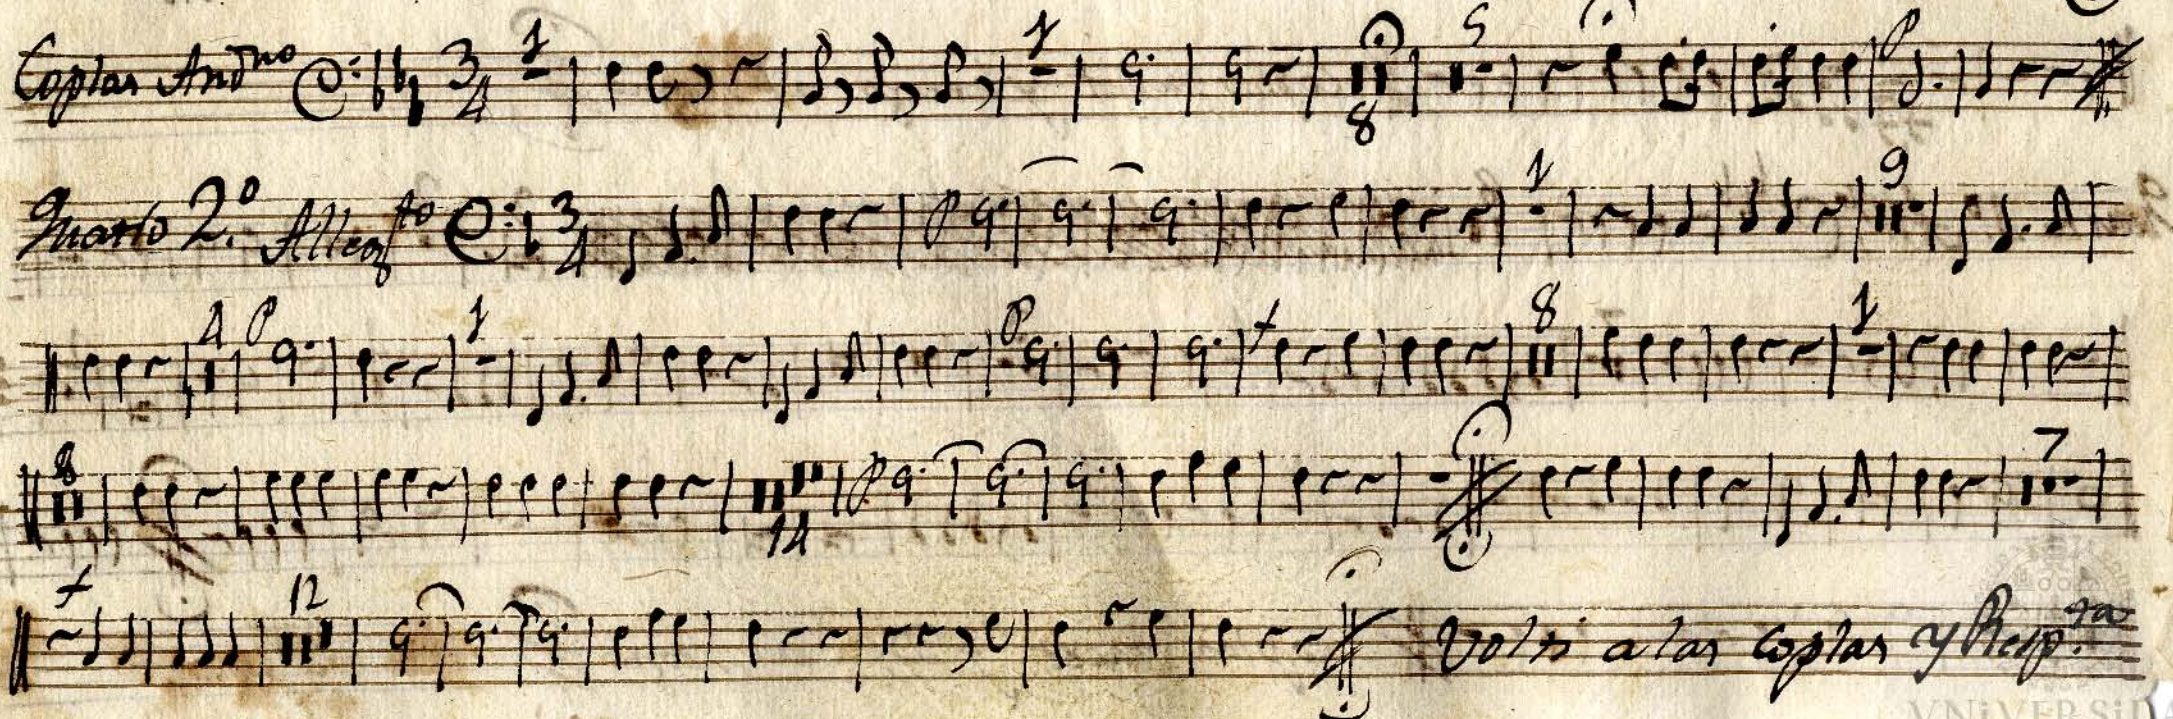 1 1 5
Coplas And^no 3/4 8 P
1 9
Quarto 2.º Alleg^to 3/4 P
4 P 1 P f 8 1
8 14 P 7
f 12 Volti a las coplas y Resp.^ta
VNiVERSiDA